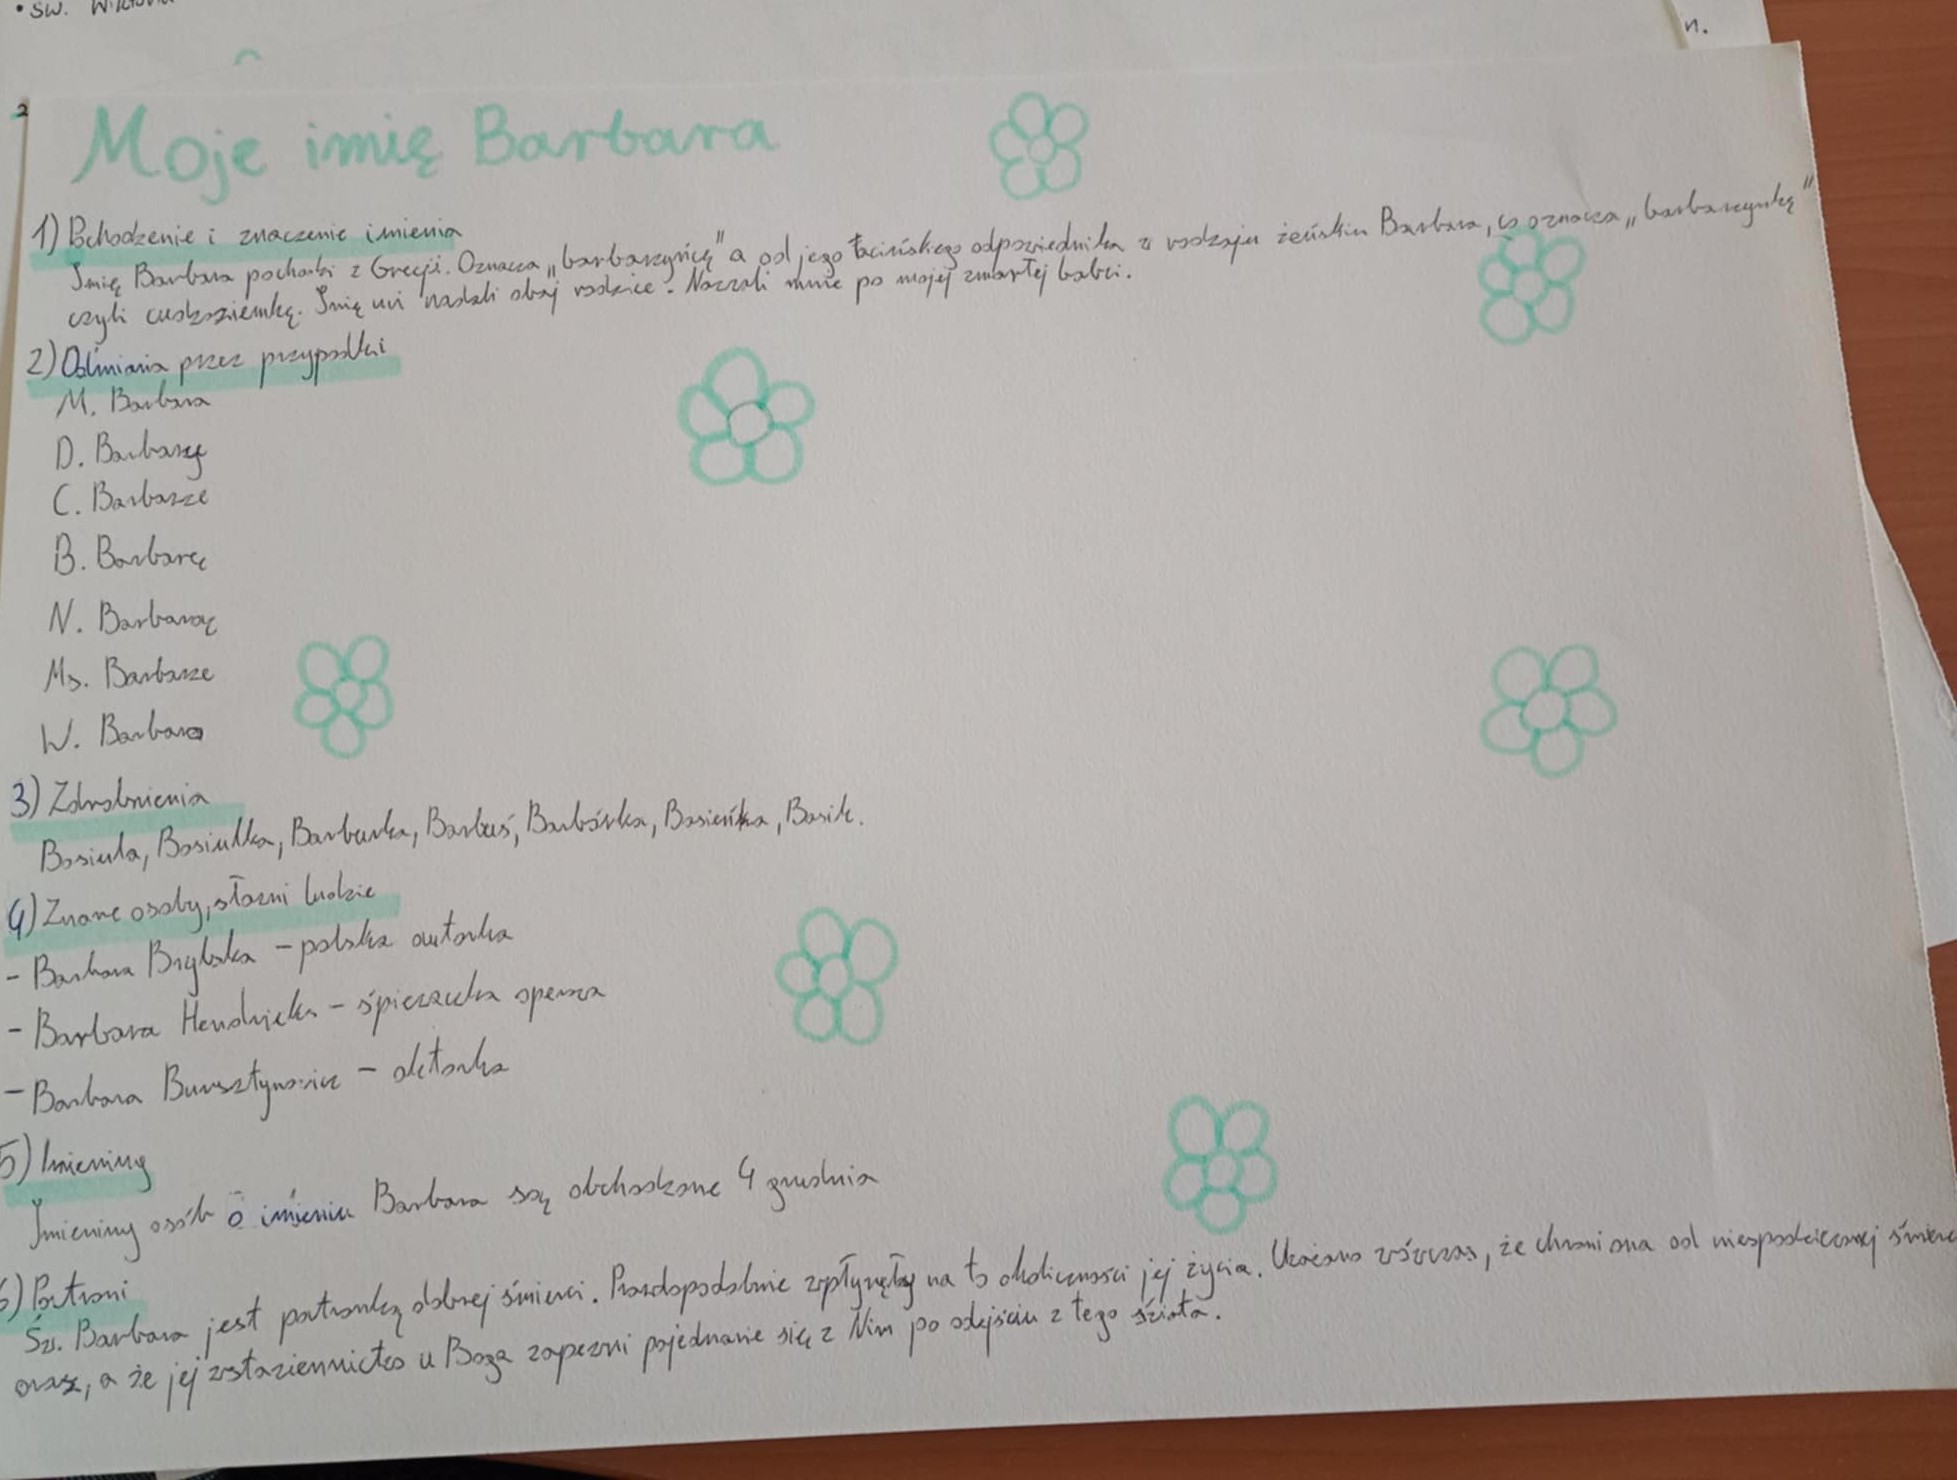 • św. Wiktoria
n.
2
Moje imię Barbara
1) Pochodzenie i znaczenie imienia
Imię Barbara pochodzi z Grecji. Oznacza „barbarzyńcę" a od jego łacińskiego odpowiednika w rodzaju żeńskim Barbara, co oznacza „barbarzynkę"
czyli cudzoziemkę. Imię mi nadali obaj rodzice. Nazwali mnie po mojej zmarłej babci.
2) Odmiana przez przypadki
M. Barbara
D. Barbary
C. Barbarze
B. Barbarę
N. Barbarą
Ms. Barbarze
W. Barbaro
3) Zdrobnienia
Basiula, Basiulka, Barburka, Barbuś, Barbórka, Basieńka, Basik.
4) Znane osoby, sławni ludzie
- Barbara Brylska - polska autorka
- Barbara Hendricks - śpiewaczka operowa
- Barbara Bursztynowicz - aktorka
5) Imieniny
Imieniny osób o imieniu Barbara są obchodzone 4 grudnia
6) Patroni
Św. Barbara jest patronką dobrej śmierci. Prawdopodobnie wpłynęły na to okoliczności jej życia. Uważano wówczas, że chroni ona od niespodziewanej
oraz, a że jej wstawiennictwo u Boga zapewni pojednanie się z Nim po odejściu z tego świata.